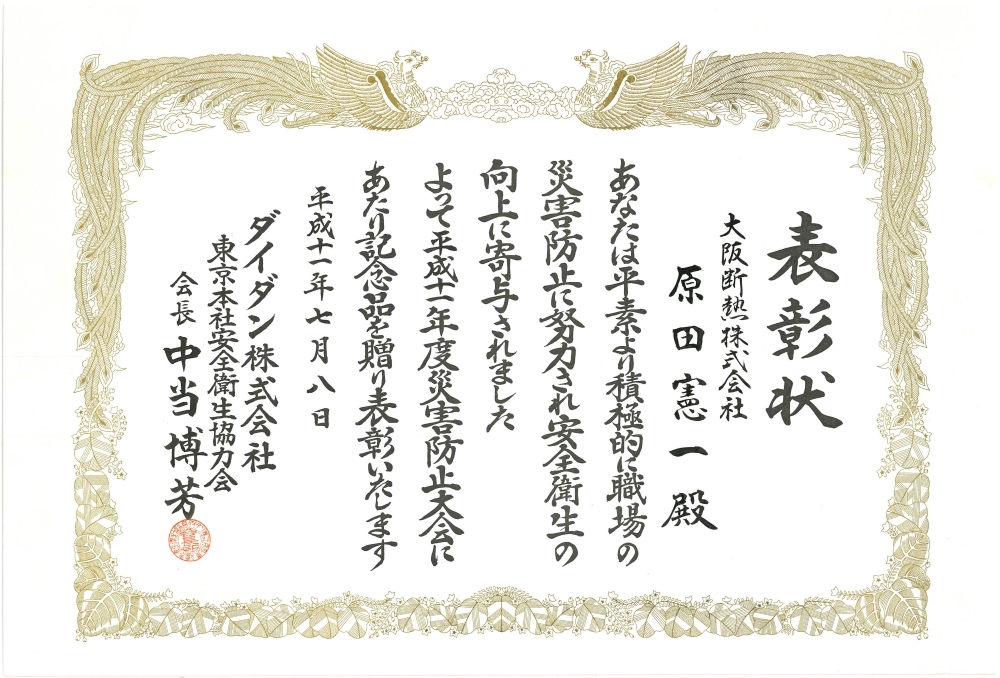 表彰状
大阪断熱株式会社
原田憲一殿
あなたは平素より積極的に職場の
災害防止に努力され安全衛生の
向上に寄与されました
よって平成十一年度災害防止大会に
あたり記念品を贈り表彰いたします
平成十一年七月八日
ダイダン株式会社
東京本社安全衛生協力会
会長 中当博芳